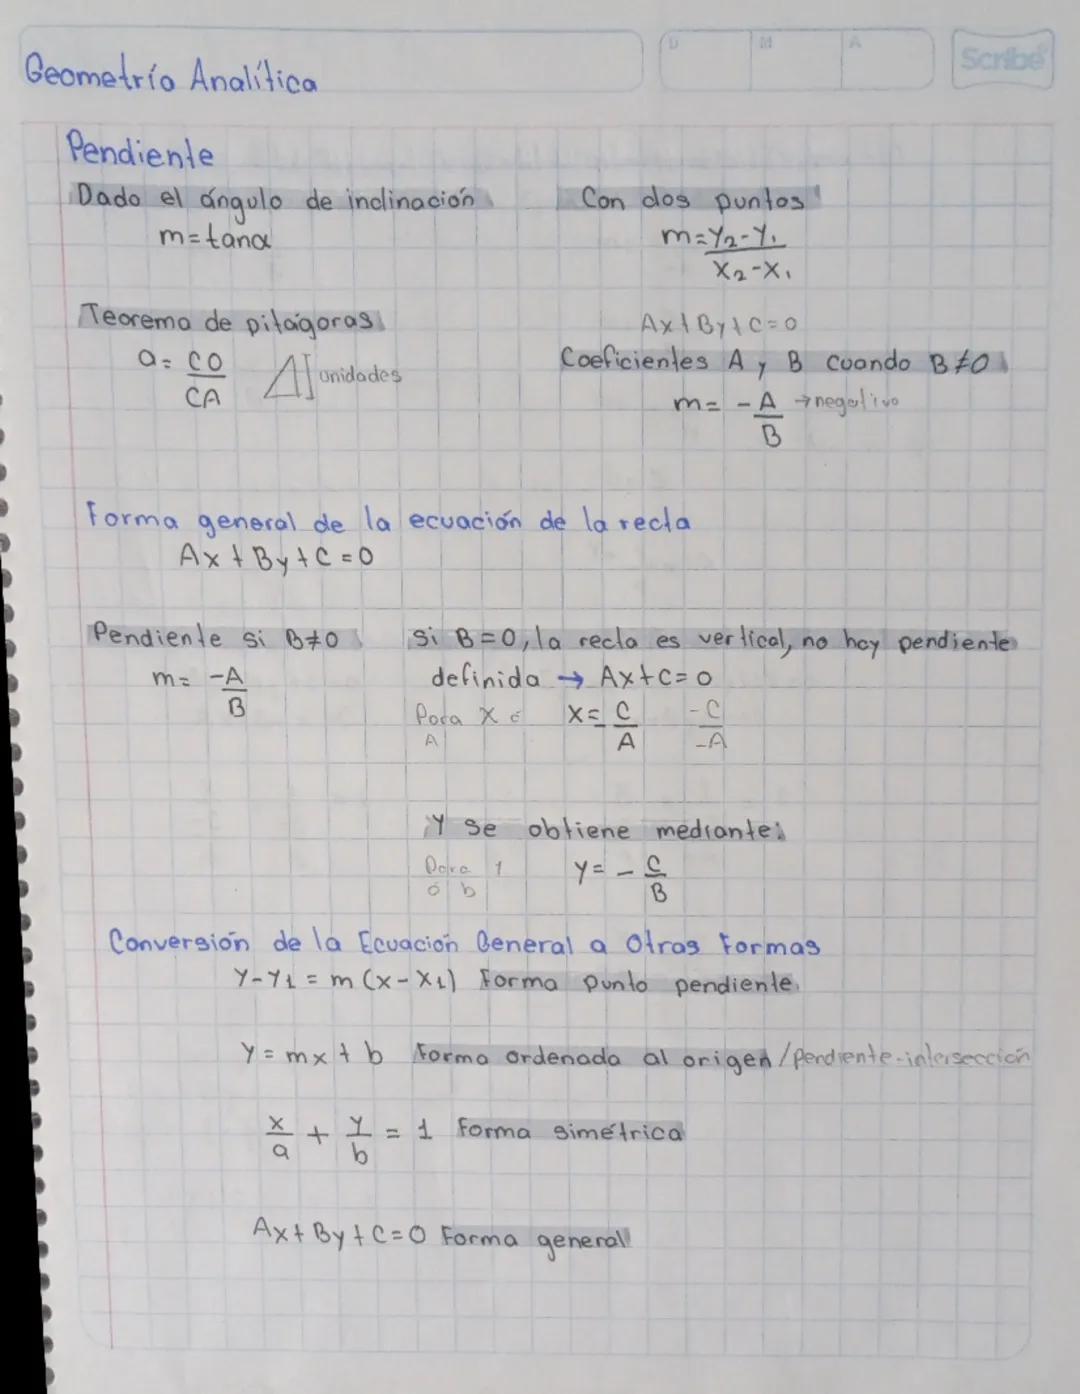 D M A
Scribe
Geometría Analítica
Pendiente
Dado el ángulo de inclinación
m=tanα
Con dos puntos
m=Y₂-Y₁
X₂-X₁
Teorema de pitágoras
a= CO
CA
unidades
Ax+By+C=0
Coeficientes A y B cuando B≠0
m= -A →negativo
B
Forma general de la ecuación de la recta
Ax+By+C=0
Pendiente si B≠0
m= -A
B
Si B=0, la recta es vertical, no hay pendiente
definida → Ax+C=0
Para X ó X= C -C
A A -A
Y se obtiene mediante:
Para y= - C
ó b B
Conversión de la Ecuación General a Otras Formas
Y-Y₁ = m(x-X₁) Forma punto pendiente
Y=mx+b Forma ordenada al origen/pendiente-intersección
x/a + y/b = 1 Forma simétrica
Ax+By+C=0 Forma general